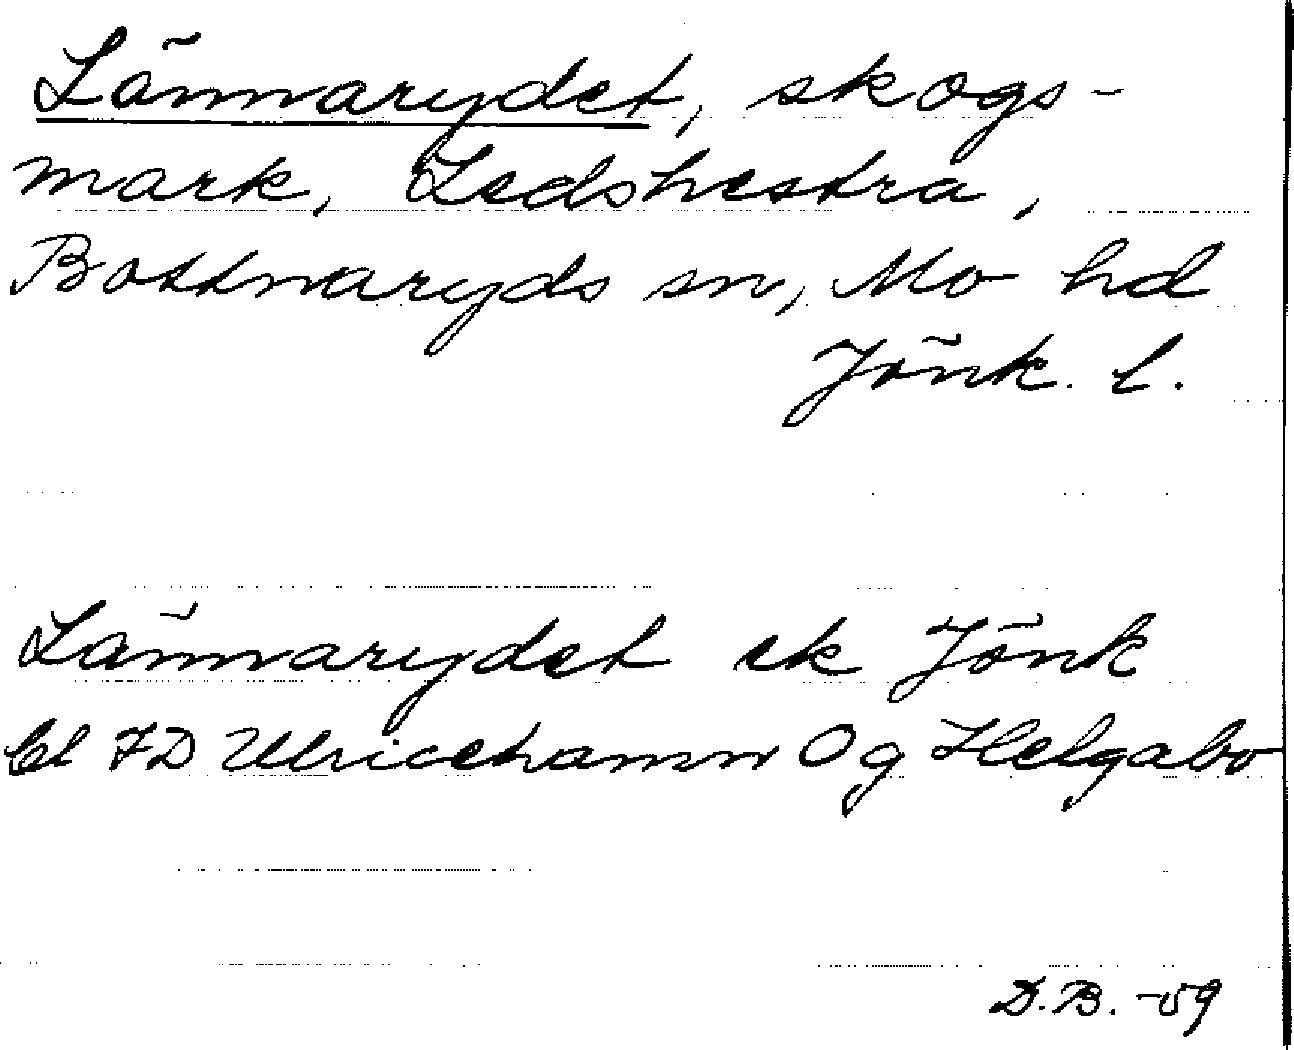 Lännarydet, skogs-
mark, Ledshestra,
Bottnaryds sn, Mo hd
Jönk. l.
Lännarydet ek Jönk
bl FD Ulricehamn Og Helgabo
D.B. -59